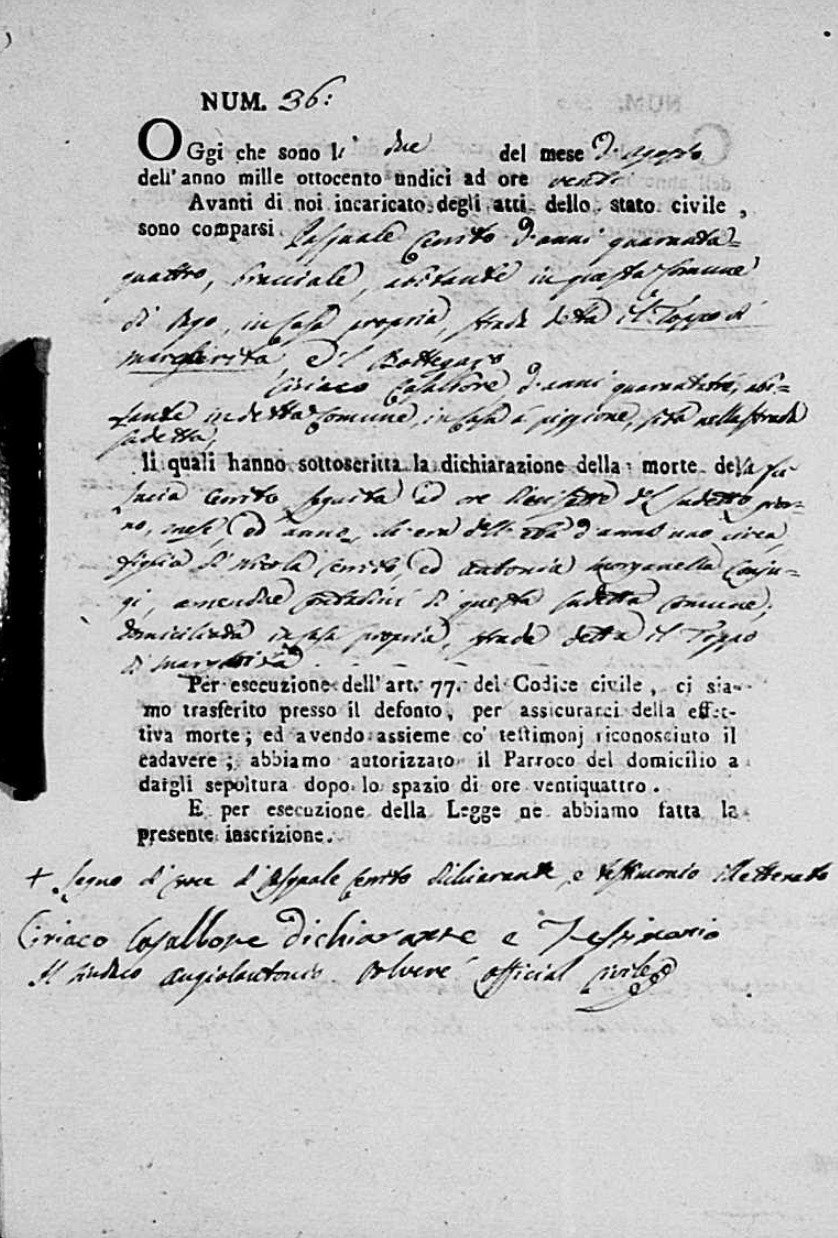 NUM. 36:
OGgi che sono li due del mese d'agosto
dell'anno mille ottocento undici ad ore venti
Avanti di noi incaricato degli atti dello stato civile,
sono comparsi Pasquale Cerrito d'anni quaranta=
quattro, bracciale, abitante in questa Comune
di Apo, in casa propria, strada detta il Toppo di
margherita e'l Bottegaro
Ciriaco Casalbore d'anni quarantatrè, abi=
tante in detta Comune, in casa a piggione, sita nella strada
sudetta,
li quali hanno sottoscritta la dichiarazione della morte della fù
Lucia Cerrito seguita ad ore diecisette del sudetto gior=
no, mese, ed anno, di età d'anno uno circa,
figlia di Nicola Cerrito, ed Antonia Morganella Conju=
gi, amendue contadini di questa sudetta Comune,
domiciliata in casa propria, strada detta il Toppo
di margherita
Per esecuzione dell'art. 77. del Codice civile, ci sia-
mo trasferito presso il defonto, per assicurarci della effet-
tiva morte; ed avendo assieme co' testimonj riconosciuto il
cadavere; abbiamo autorizzato il Parroco del domicilio a
dargli sepoltura dopo lo spazio di ore ventiquattro.
E per esecuzione della Legge ne abbiamo fatta la
presente inscrizione.
+ Segno di croce di Pasquale Cerrito dichiarante, e testimonio illetterato
Ciriaco Casalbore dichiarante e Testimonio
Il sindaco Angiolantonio Polvere official civile